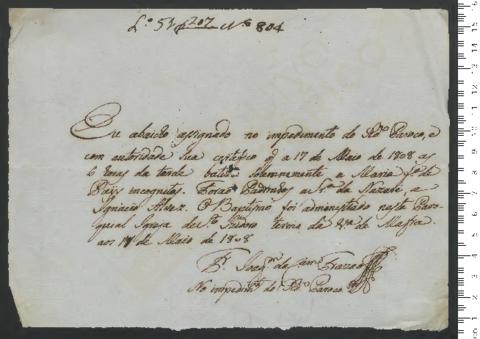 L.º 53 207 N.º 804
Eu abaicho asignado no impedimento do Rd.º Paroco, e
com autoridade sua certifico q a 17 de Maio de 1808 as
6 oras da tarde batizei solemnemente a Maria f.ª de
Pays incognitos, Forão Padrinhos a S.ª de Nazaré, e
Ignacio Alex. O Baptismo foi administrado nesta Paro
quial Igreja de St.º Izidoro termo da V.ª de Mafra
aos 17 de Maio de 1808
P.e Joaq.m de Frazão
No impedim.to do Rd.º Paroco